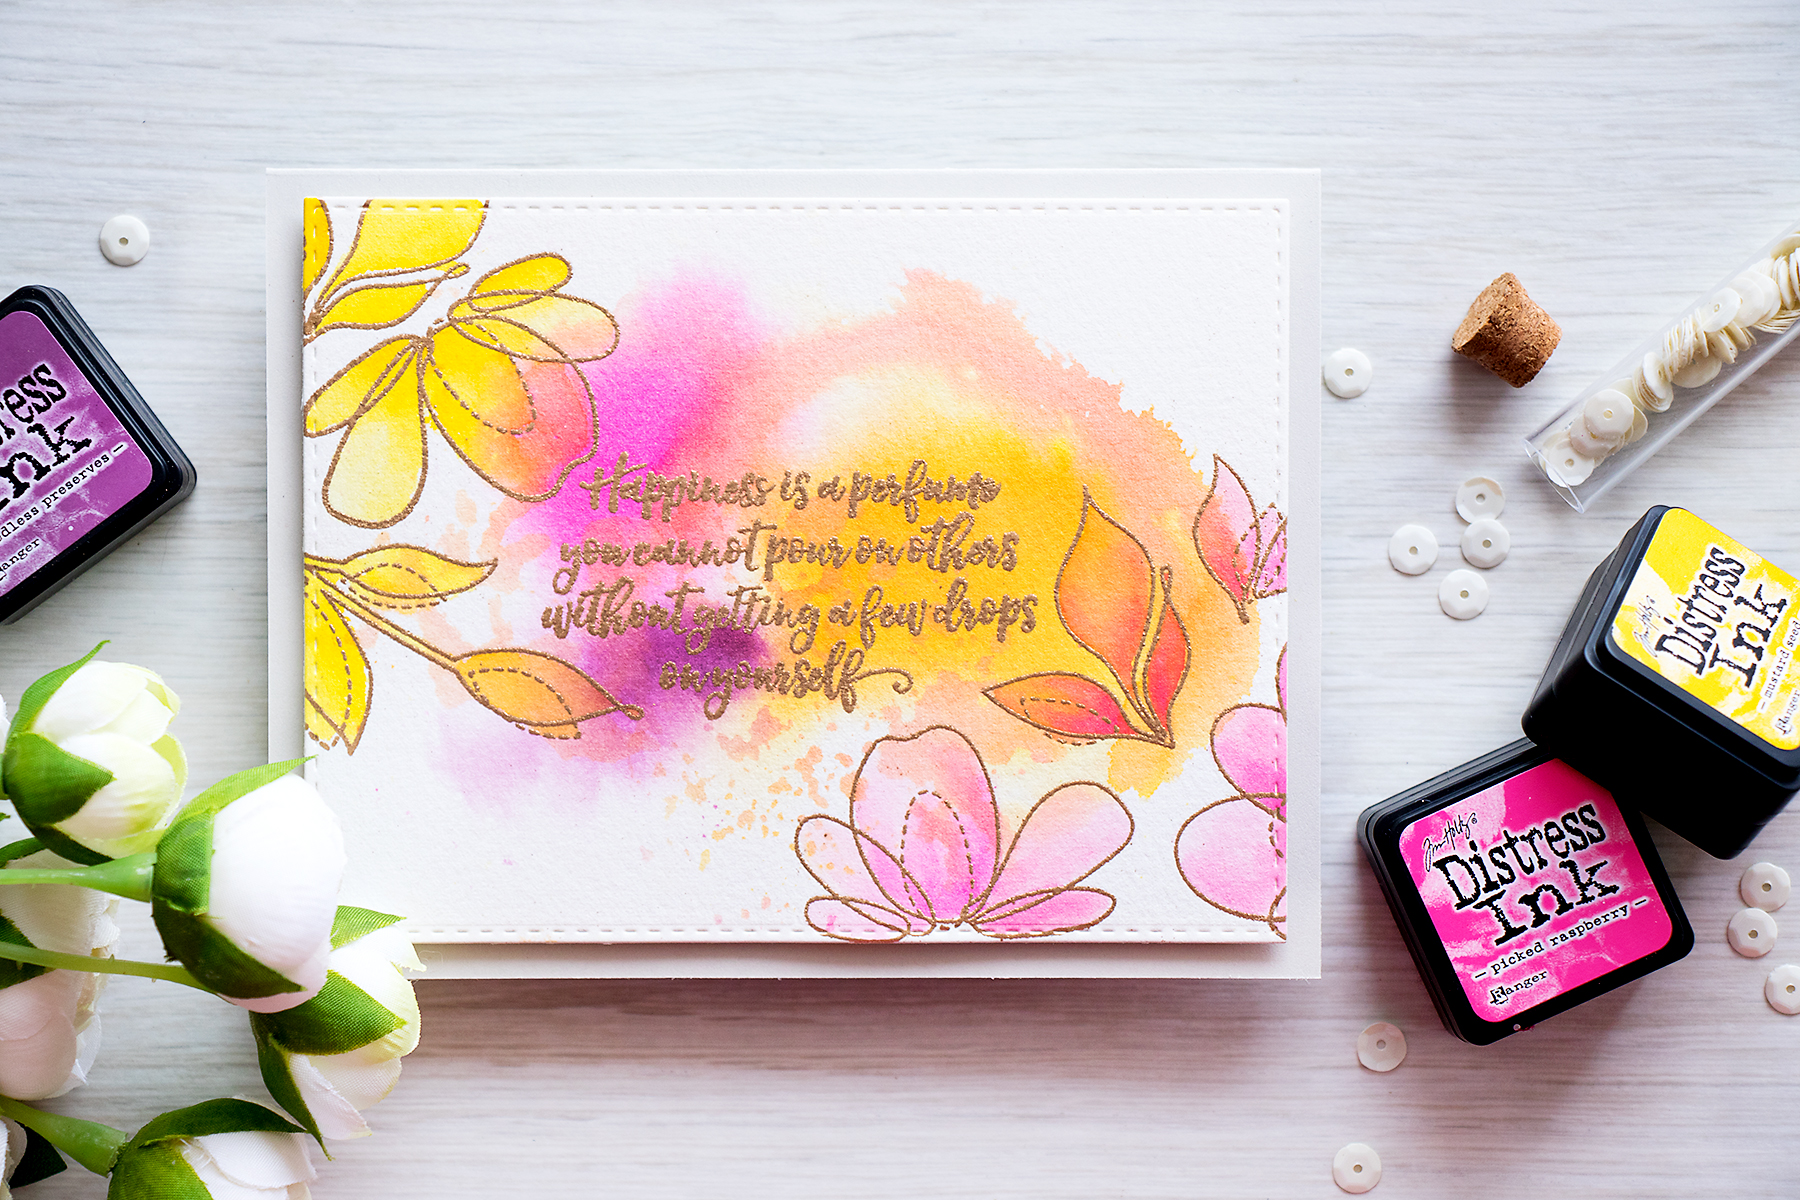 Happiness is a perfume
you cannot pour on others
without getting a few drops
on yourself
ress
Ink
dless preserves —
Ranger
Tim Holtz®
Distress
Ink
— mustard seed
Ranger
Tim Holtz®
Distress
Ink
— picked raspberry —
Ranger